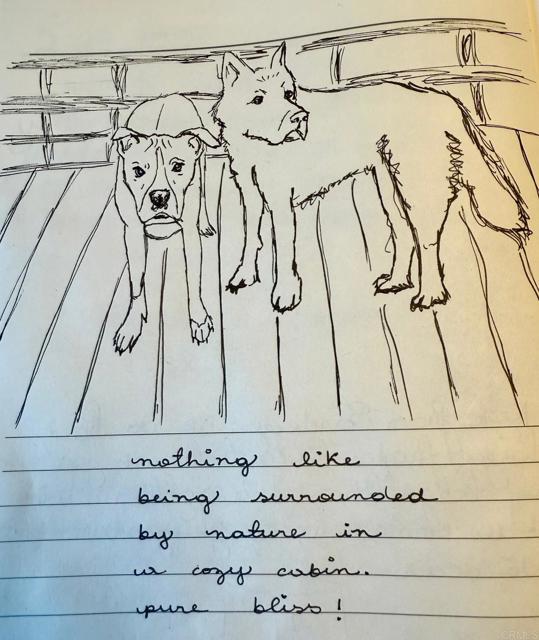 nothing like
being surrounded
by nature in
ur cozy cabin.
pure bliss!